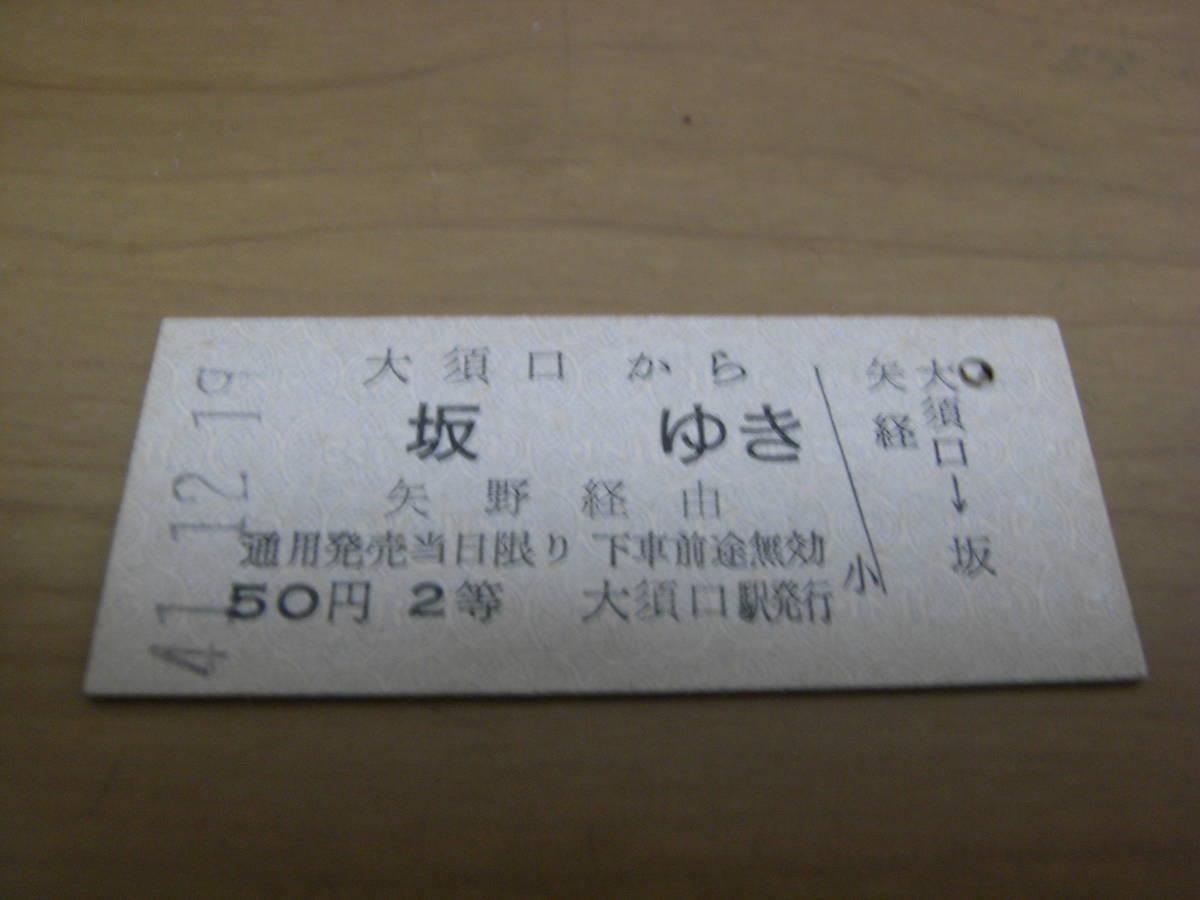 41.12.19
大須口から
坂 ゆき
矢野経由
通用発売当日限り 下車前途無効
50円 2等 大須口駅発行
小
大須口→坂
矢経